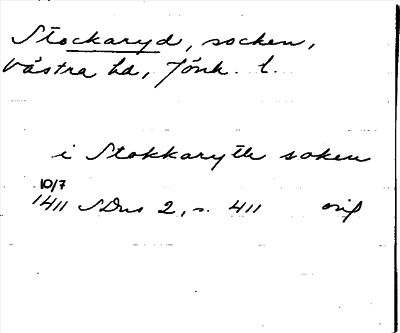 Stockaryd, socken,
Västra hd, Jönk. l.
i Stokkaryth soken
10/7
1411 SDns 2, s. 411 orig